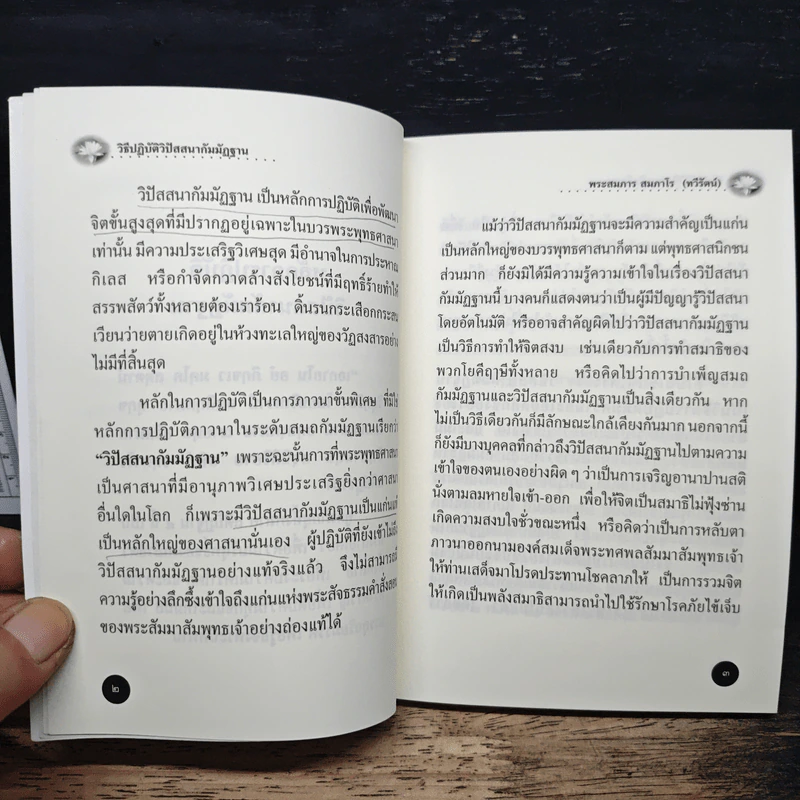 วิธีปฏิบัติวิปัสสนากัมมัฏฐาน
วิปัสสนากัมมัฏฐาน เป็นหลักการปฏิบัติเพื่อพัฒนา
จิตขั้นสูงสุดที่มีปรากฏอยู่เฉพาะในบวรพระพุทธศาสนา
เท่านั้น มีความประเสริฐวิเศษสุด มีอำนาจในการประหาณ
กิเลส หรือกำจัดกวาดล้างสังโยชน์ที่มีฤทธิ์ร้ายทำให้
สรรพสัตว์ทั้งหลายต้องเร่าร้อน ดิ้นรนกระเสือกกระสน
เวียนว่ายตายเกิดอยู่ในห้วงทะเลใหญ่ของวัฏสงสารอย่าง
ไม่มีที่สิ้นสุด
หลักในการปฏิบัติเป็นการภาวนาขั้นพิเศษ ที่มิใช่
หลักการปฏิบัติภาวนาในระดับสมถกัมมัฏฐานเรียกว่า
“วิปัสสนากัมมัฏฐาน” เพราะฉะนั้นการที่พระพุทธศาสนา
เป็นศาสนาที่มีอานุภาพวิเศษประเสริฐยิ่งกว่าศาสนา
อื่นใดในโลก ก็เพราะมีวิปัสสนากัมมัฏฐานเป็นแก่นแท้
เป็นหลักใหญ่ของศาสนานั่นเอง ผู้ปฏิบัติที่ยังเข้าไม่ถึง
วิปัสสนากัมมัฏฐานอย่างแท้จริงแล้ว จึงไม่สามารถมี
ความรู้อย่างลึกซึ้งเข้าใจถึงแก่นแห่งพระสัจธรรมคำสั่งสอน
ของพระสัมมาสัมพุทธเจ้าอย่างถ่องแท้ได้
๒
พระสมภาร สมภาโร (ทวีรัตน์)
แม้ว่าวิปัสสนากัมมัฏฐานจะมีความสำคัญเป็นแก่น
เป็นหลักใหญ่ของบวรพุทธศาสนาก็ตาม แต่พุทธศาสนิกชน
ส่วนมาก ก็ยังมิได้มีความรู้ความเข้าใจในเรื่องวิปัสสนา
กัมมัฏฐานนี้ บางคนก็แสดงตนว่าเป็นผู้มีปัญญารู้วิปัสสนา
โดยอัตโนมัติ หรืออาจสำคัญผิดไปว่าวิปัสสนากัมมัฏฐาน
เป็นวิธีการทำให้จิตสงบ เช่นเดียวกับการทำสมาธิของ
พวกโยคีฤาษีทั้งหลาย หรือคิดไปว่าการบำเพ็ญสมถ
กัมมัฏฐานและวิปัสสนากัมมัฏฐานเป็นสิ่งเดียวกัน หาก
ไม่เป็นวิธีเดียวกันก็มีลักษณะใกล้เคียงกันมาก นอกจากนี้
ก็ยังมีบางบุคคลที่กล่าวถึงวิปัสสนากัมมัฏฐานไปตามความ
เข้าใจของตนเองอย่างผิด ๆ ว่าเป็นการเจริญอานาปานสติ
นั่งตามลมหายใจเข้า-ออก เพื่อให้จิตเป็นสมาธิไม่ฟุ้งซ่าน
เกิดความสงบใจชั่วขณะหนึ่ง หรือคิดว่าเป็นการหลับตา
ภาวนาออกนามองค์สมเด็จพระทศพลสัมมาสัมพุทธเจ้า
ให้ท่านเสด็จมาโปรดประทานโชคลาภให้ เป็นการรวมจิต
ให้เกิดเป็นพลังสมาธิสามารถนำไปใช้รักษาโรคภัยไข้เจ็บ
๓